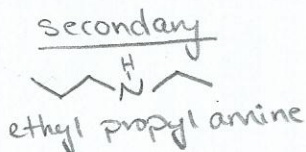 secondary
H
N
ethyl propyl amine